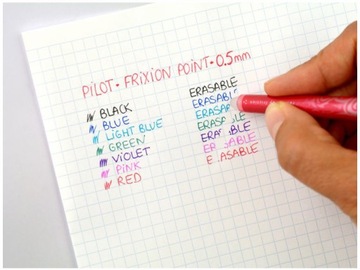 PILOT - FRIXION POINT - 0.5mm
BLACK
BLUE
LIGHT BLUE
GREEN
VIOLET
PINK
RED
ERASABLE
ERASABL
ERASA
ERASA
ERA ABLE
ER SABLE
E ASABLE